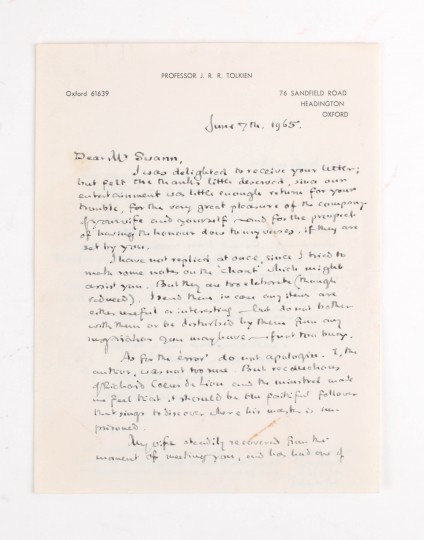 PROFESSOR J. R. R. TOLKIEN
Oxford 61639
76 SANDFIELD ROAD
HEADINGTON
OXFORD
June 7th. 1965.
Dear Mr Swann,
I was delighted to receive your letter;
but felt the thanks little deserved, since our
entertainment was little enough return for your
trouble, for the very great pleasure of the company
of your wife and yourself – and for the prospect
of having the honour done to my verses. if they are
set by you.
I have not replied at once, since I tried to
make some notes on the 'chant' which might
assist you. But they are too elaborate (though
reduced). I send them in case any items are
either useful or interesting – but do not bother
with them or be disturbed by them from any
inspiration you may have – if not too busy.
As for the 'error' do not apologize. I, the
author, was not too sure. But recollections
of Richard Coeur de Lion and the minstrel made
me feel that it should be the faithful follower
that sings to discover where his master is im-
prisoned.
My wife steadily recovered from the
moment of meeting you, and has had one of